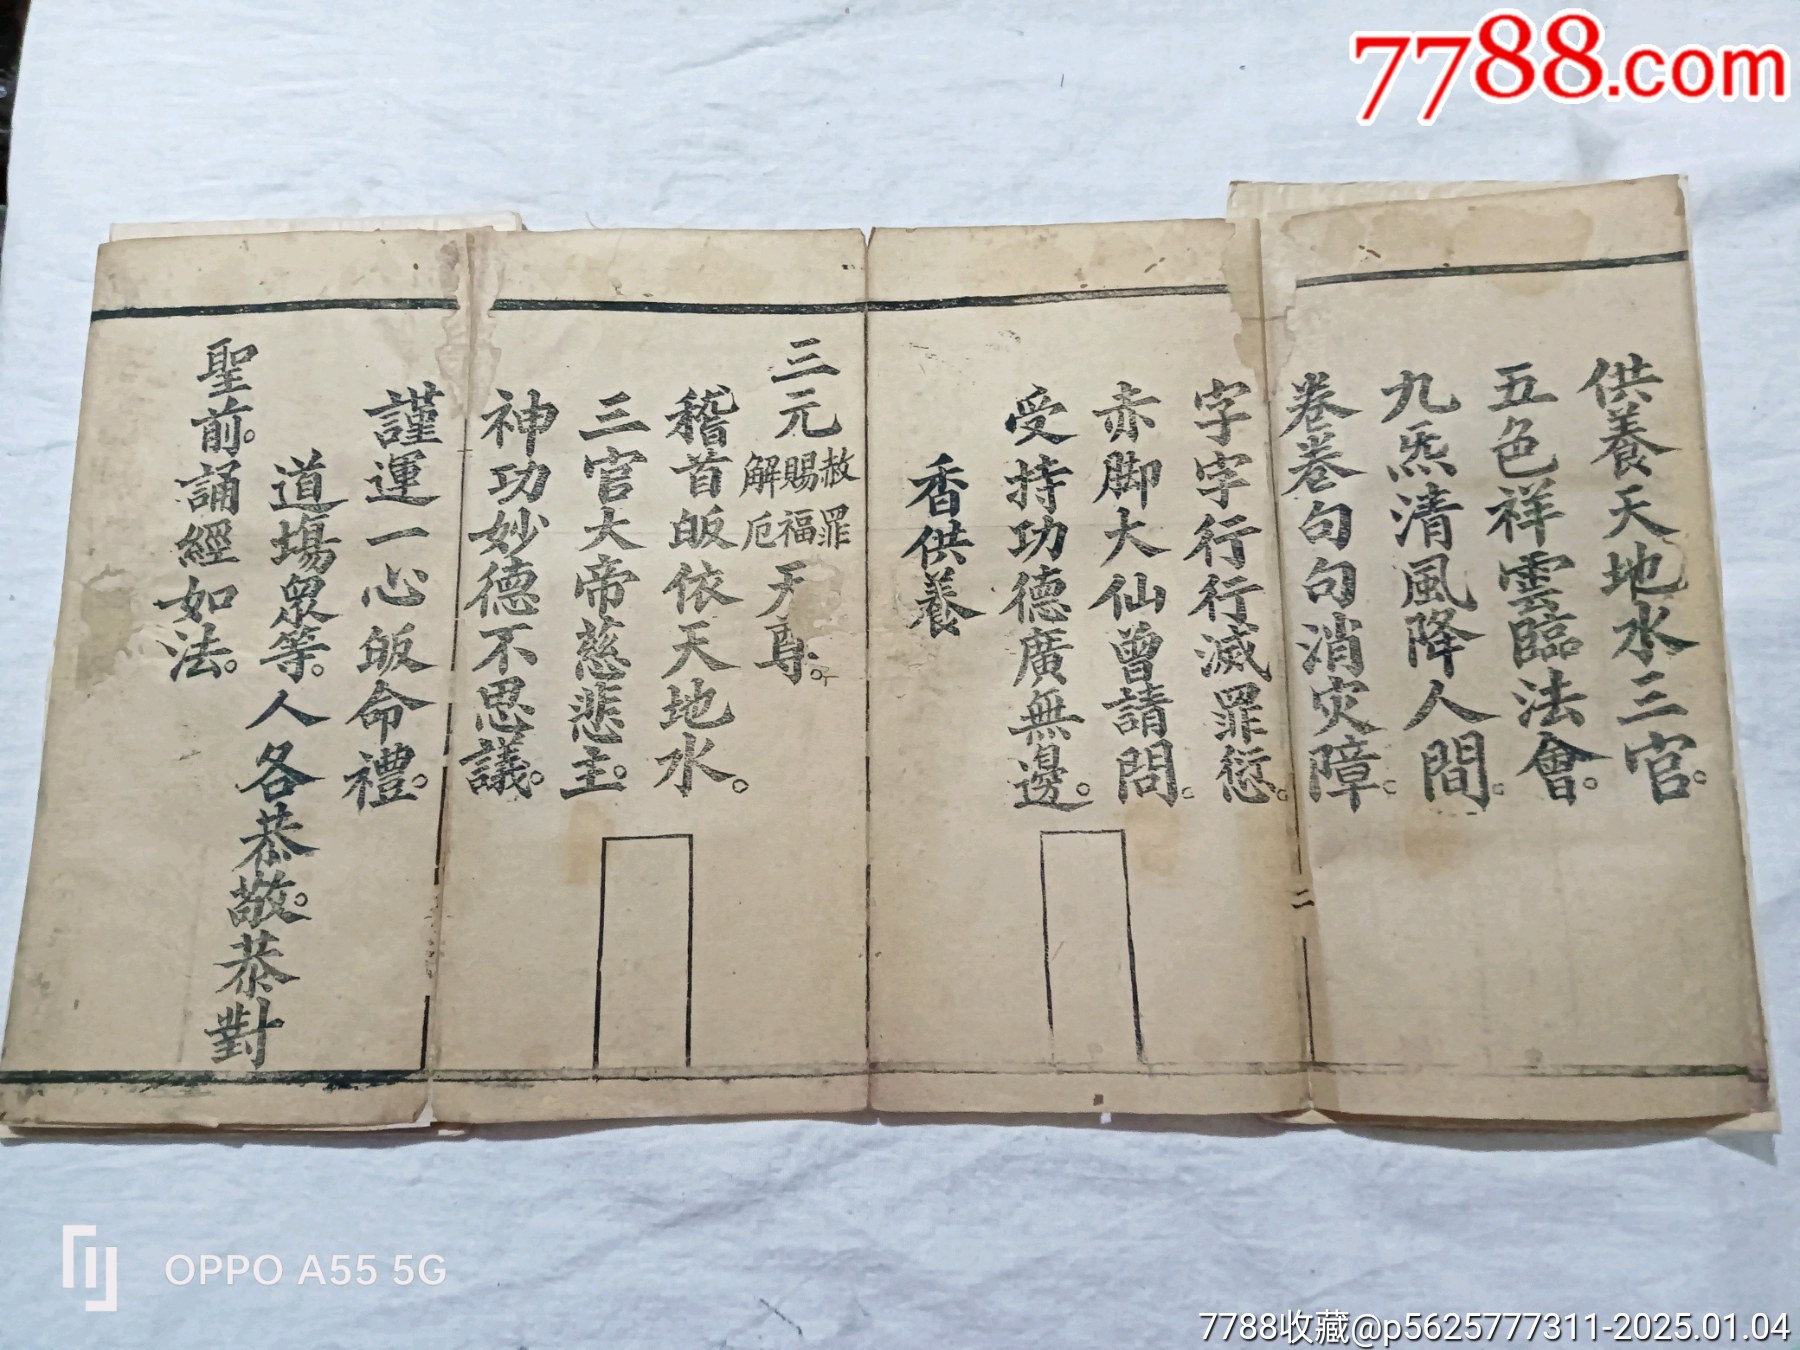 7788.com
供養天地水三官。
五色祥雲臨法會。
九炁清風降人間。
卷卷句句消灾障。
二
字字行行滅罪愆。
赤脚大仙曾請問。
受持功德廣無邊。
香供養
三元赦罪賜福解厄天尊。
稽首皈依天地水。
三官大帝慈悲主。
神功妙德不思議。
謹運一心皈命禮。
道塲衆等。人各恭敬。恭對
聖前。誦經如法。
OPPO A55 5G
7788收藏@p5625777311-2025.01.04